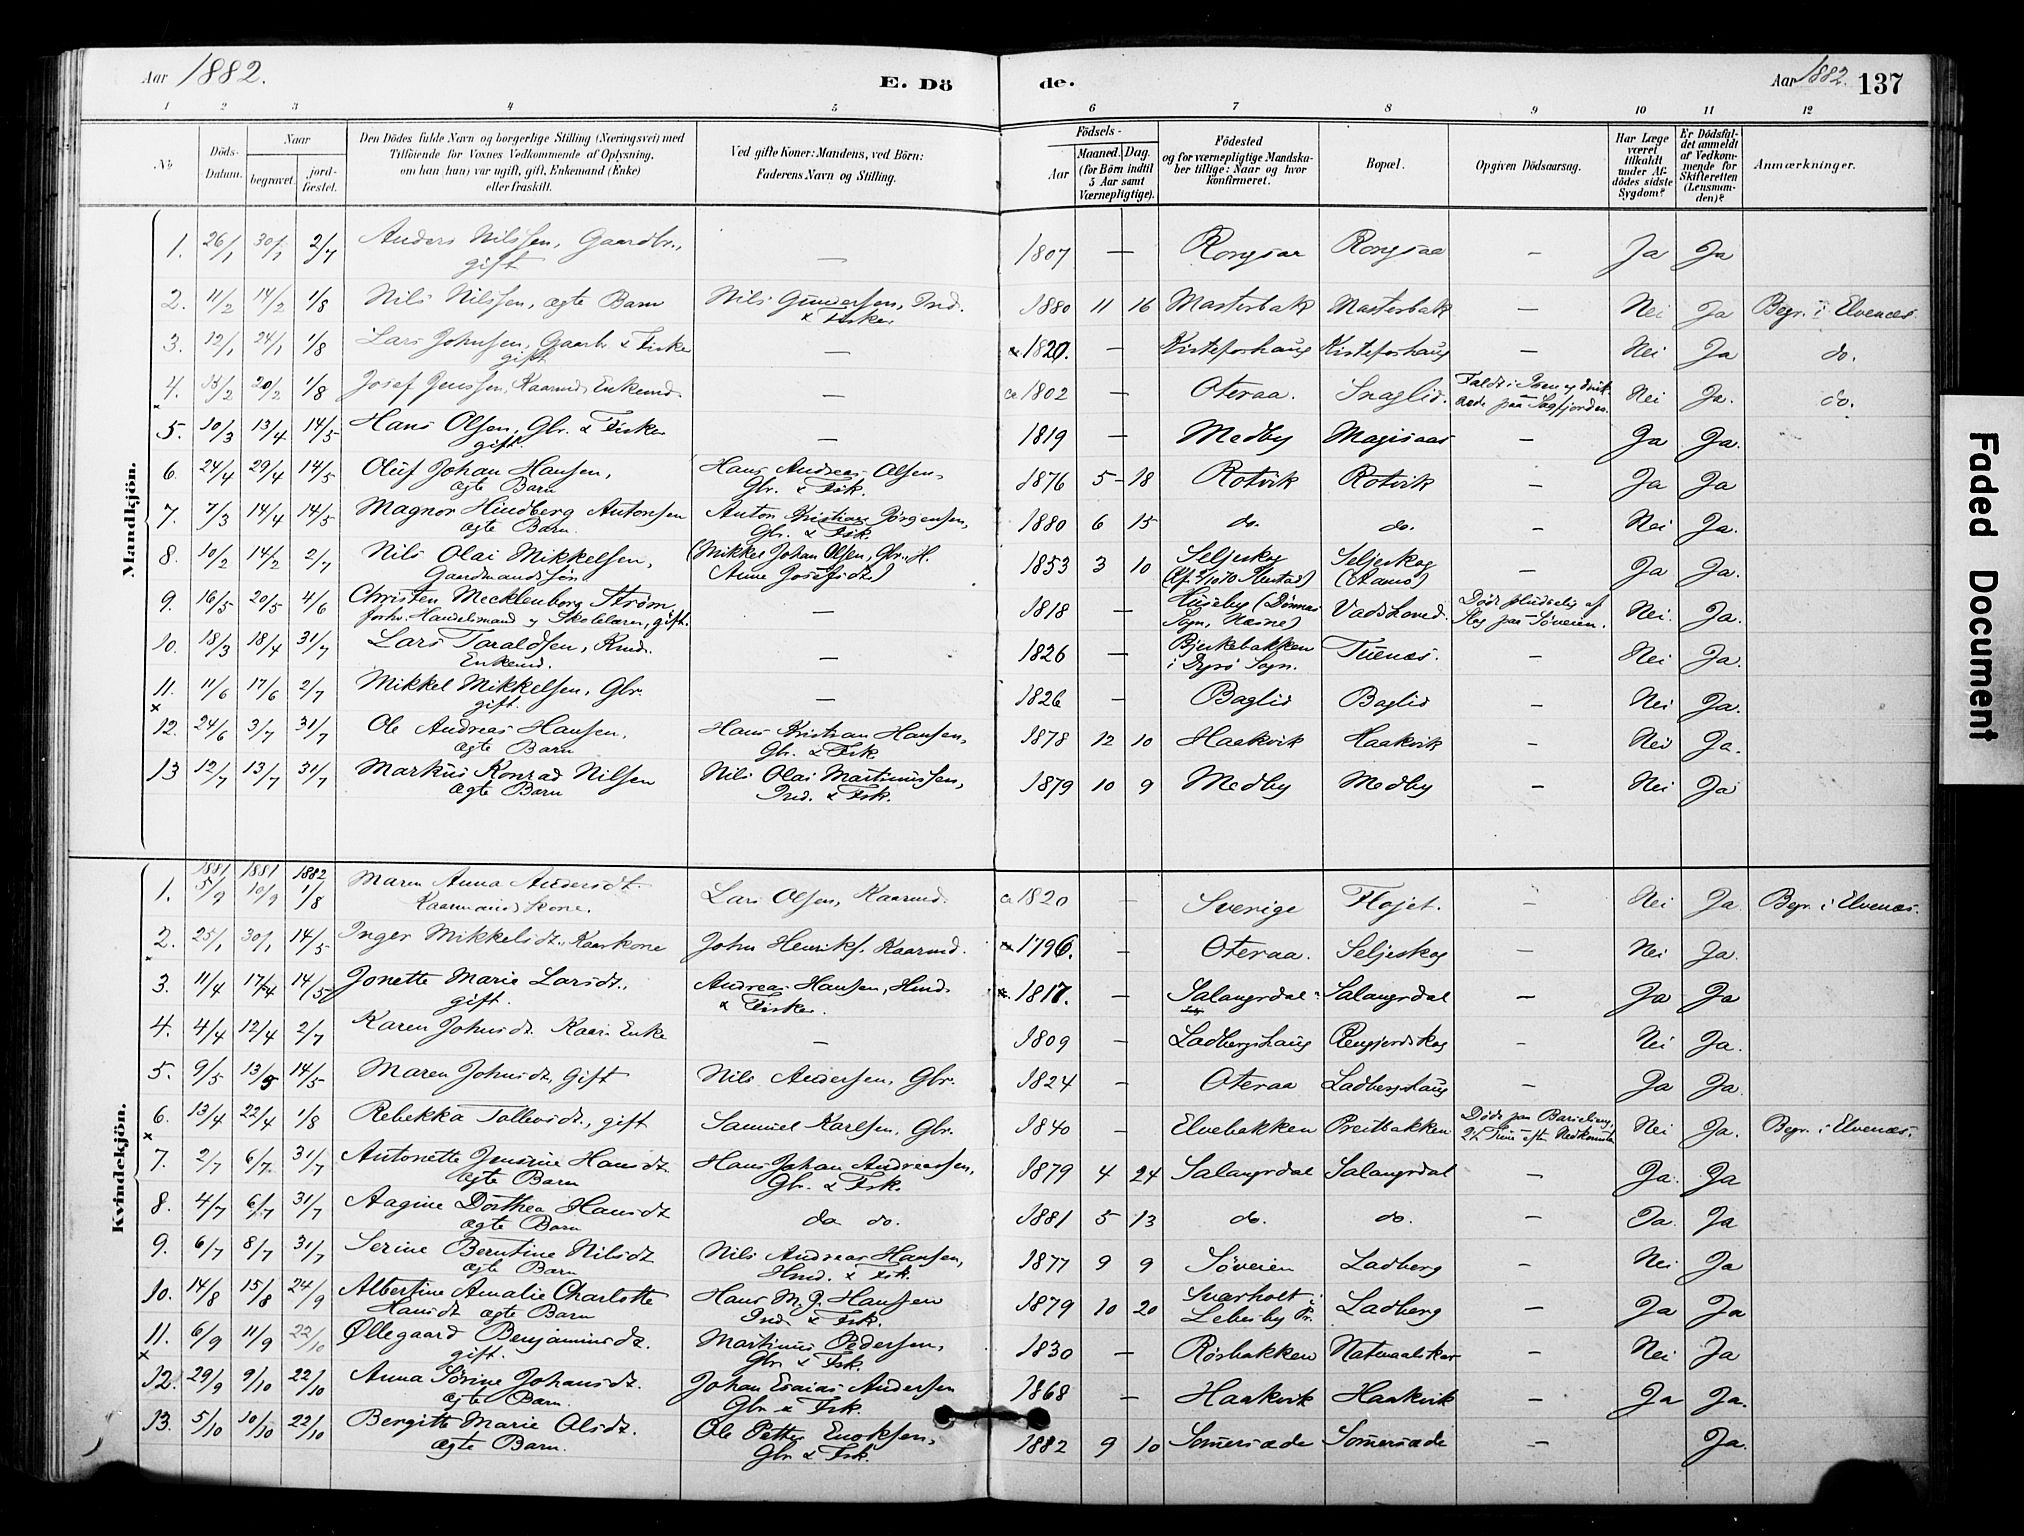 Aar 1882. E. Dö de. Aar 1882. 137
1 2 3 4 5 6 7 8 9 10 11 12
No Döds-Datum. Naar begravet. jordfæstet. Den Dödes fulde Navn og borgerlige Stilling (Næringsvei) med Tilföiende for Voxnes Vedkommende af Oplysning, om han (hun) var ugift, gift, Enkemand (Enke) eller fraskilt. Ved gifte Koner: Mandens, ved Börn: Faderens Navn og Stilling. Födsels- Aar Maaned. Dag. (for Börn indtil 5 Aar samt Værnepligtige). Födested og for værnepligtige Mandskaber tillige: Naar og hvor konfirmeret. Bopæl. Opgiven Dödsaarsag. Har Læge været tilkaldt under Afdödes sidste Sygdom? Er Dödsfaldet anmeldt af Vedkommende for Skifteretten (Lensmanden)? Anmærkninger.
Mandkjön.
1. 26/1 30/1 2/7 Anders Nilssen, Gaardbr., gift — 1807 — Rongsaa Rongsaa — Ja Ja
2. 11/2 14/2 1/8 Nils Nilssen, ægte Barn Nils Gundersen, Ind. & Fisker 1880 11 16 Masterbak Masterbak — Nei Ja Begr. i Elvenæs.
3. 12/1 24/1 1/8 Lars Johnsen, Gaarb. & Fisker gift — 1820. — Kisteforshaug Kisteforshaug — Nei Ja do.
4. 15/2 20/2 1/8 Josef Jenssen, Kaarmd. Enkemd. — ca 1802 — Oteraa. Snaglid. Faldt i paa Sagfjorden. Nei Ja. do.
5. 10/3 13/4 14/5 Hans Olsen, Gbr. & Fisker gift. — 1819 — Medby Magisaas — Ja Ja.
6 24/4 29/4 14/5 Oluf Johan Hansen, ægte Barn Hans Andreas Olsen, Gbr. & Fisk. 1876 5 18 Rotvik Rotvik — Ja Ja
7. 7/3 14/4 14/5 Magnor Hindberg Antonsen ægte Barn Anton Kristian Jörgensen, Gbr. & Fsk. 1880 6 15 do. do. — Nei Ja.
8. 10/2 14/2 2/7 Nils Olai Mikkelsen, Gaardmandssøn (Mikkel Johan Olsen, Gbr., H. Anne Josefsdt.) 1853 3 10 Seljeskog Seljeskog — Ja Ja.
9. 16/5 20/5 4/6 Christen Mecklenborg Strøm, forhv. Handelsmand og Skolelærer, gift. — 1818 — Huseby (Dønnes Sogn, Næsne) Vadshoved. Døde pludselig af Slag paa Søveien. Nei. Ja.
10. 18/3 18/4 31/7 Lars Taraldsen, Kmd. Enkemd. — 1826 — Bjerkebakken i Dyrö Sogn. Tuenæs. — Nei Ja.
11. 11/6 17/6 2/7 Mikkel Mikkelsen, Gbr. gift. — 1826 — Baglid Baglid — Nei Ja.
12. 24/6 3/7 31/7 Ole Andreas Hansen, ægte Barn Hans Kristian Hansen, Gbr. & Fsk. 1878 12 10 Haakvik Haakvik — Nei Ja.
13 12/7 13/7 31/7 Markus Konrad Nilsen ægte Barn Nils Olai Martinussen, Ind. & Fsk. 1879 10 9 Medby Medby — Nei Ja
Kvindekjön.
1. 1881 5/9 1881 10/9 1882 1/8 Maren Anna Andersdt. Kaarmands Kone. Lars Olsen, Kaarmd. ca 1820 — Sverige Fløjet. — Nei Ja Begr. i Elvenæs.
2. 25/1 30/1 14/5 Inger Mikkelsdt., Kaarkone John Henriks. Kaarmd. 1796. — Oteraa. Seljeskog — Nei Ja.
3. 11/4 17/4 14/5 Jonette Marie Larsdt., gift. Andreas Hansen, Hmd. & Fisker. 1817. — Salangsdal Salangsdal — Ja Ja
4. 4/4 12/4 2/7 Karen Johnsdt. Kaar. Enke — 1809 — Ladbergshaug Rengjerdskog — Nei Ja.
5. 9/5 13/5 14/5 Maren Johnsdt, Gift Nils Andersen, Gbr. 1824 — Oteraa Ladbergshaug — Ja Ja.
6. 13/4 22/4 1/8 Rebekka Tollevsdt., gift Samuel Karlsen, Gbr. 1840 — Elvebakken Preitbakken Døde paa Barselseng, 2½ Time eft. Nedkomsten Nei Ja. Begr. i Elvenæs.
7. 2/7 6/7 31/7 Antonette Jensine Hansdt. ægte Barn Hans Johan Andreassen, Gbr. & Fsk. 1879 4 24 Salangsdal Salangsdal — Ja. Ja
8. 4/7 6/7 31/7 Aagine Dorthea Hansdt ægte Barn do do. 1881 5 13 do. do. — Ja. Ja
9. 6/7 8/7 31/7 Serine Berntine Nilsdt ægte Barn Nils Andreas Hansen, Hmd. & Fsk. 1877 9 9 Søveien Ladberg — Nei Ja
10. 14/8 15/8 24/9 Albertine Amalie Charlotte Hansdt ægte Barn Hans M. J. Hanssen Ind. & Fsk. 1879 10 20 Sværholt i Lebesby Pr. Ladberg — Ja Ja
11. 6/9 11/9 22/10 Øllegaard Benjaminsdt. gift. Martinus Pedersen, Gbr. & Fsk. 1830 — Rösbakken — Nei Ja
12. 29/9 9/10 22/10 Anna Sörine Johansdt. ægte Barn. Johan Esaias Andersen Gbr. & Fsk. 1868 — Haakvik Haakvik — Ja Ja.
13. 5/10 10/10 22/10 Bergitte Marie Olsdt. ægte Barn. Ole Petter Enoksen, Gbr. & Fsk. 1882 9 10 Somersæde Somersæde — Ja.
Faded Document